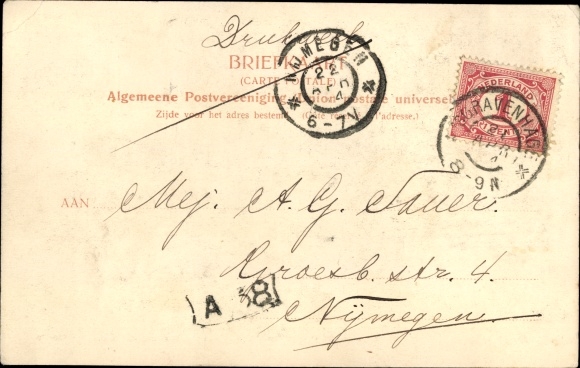 Drukwerk
BRIEFKAART
(CARTE POSTALE)
Algemeene Postvereeniging (Union postale universelle)
Zijde voor het adres bestemd. (Côté réservé à l'adresse.)
NIJMEGEN
22
4
6-7N
NEDERLAND
1
'S GRAVENHAGE
21
4
8-9N
AAN Mej. A. G. Sauer.
Groesb. str. 4.
Nijmegen.
A 38